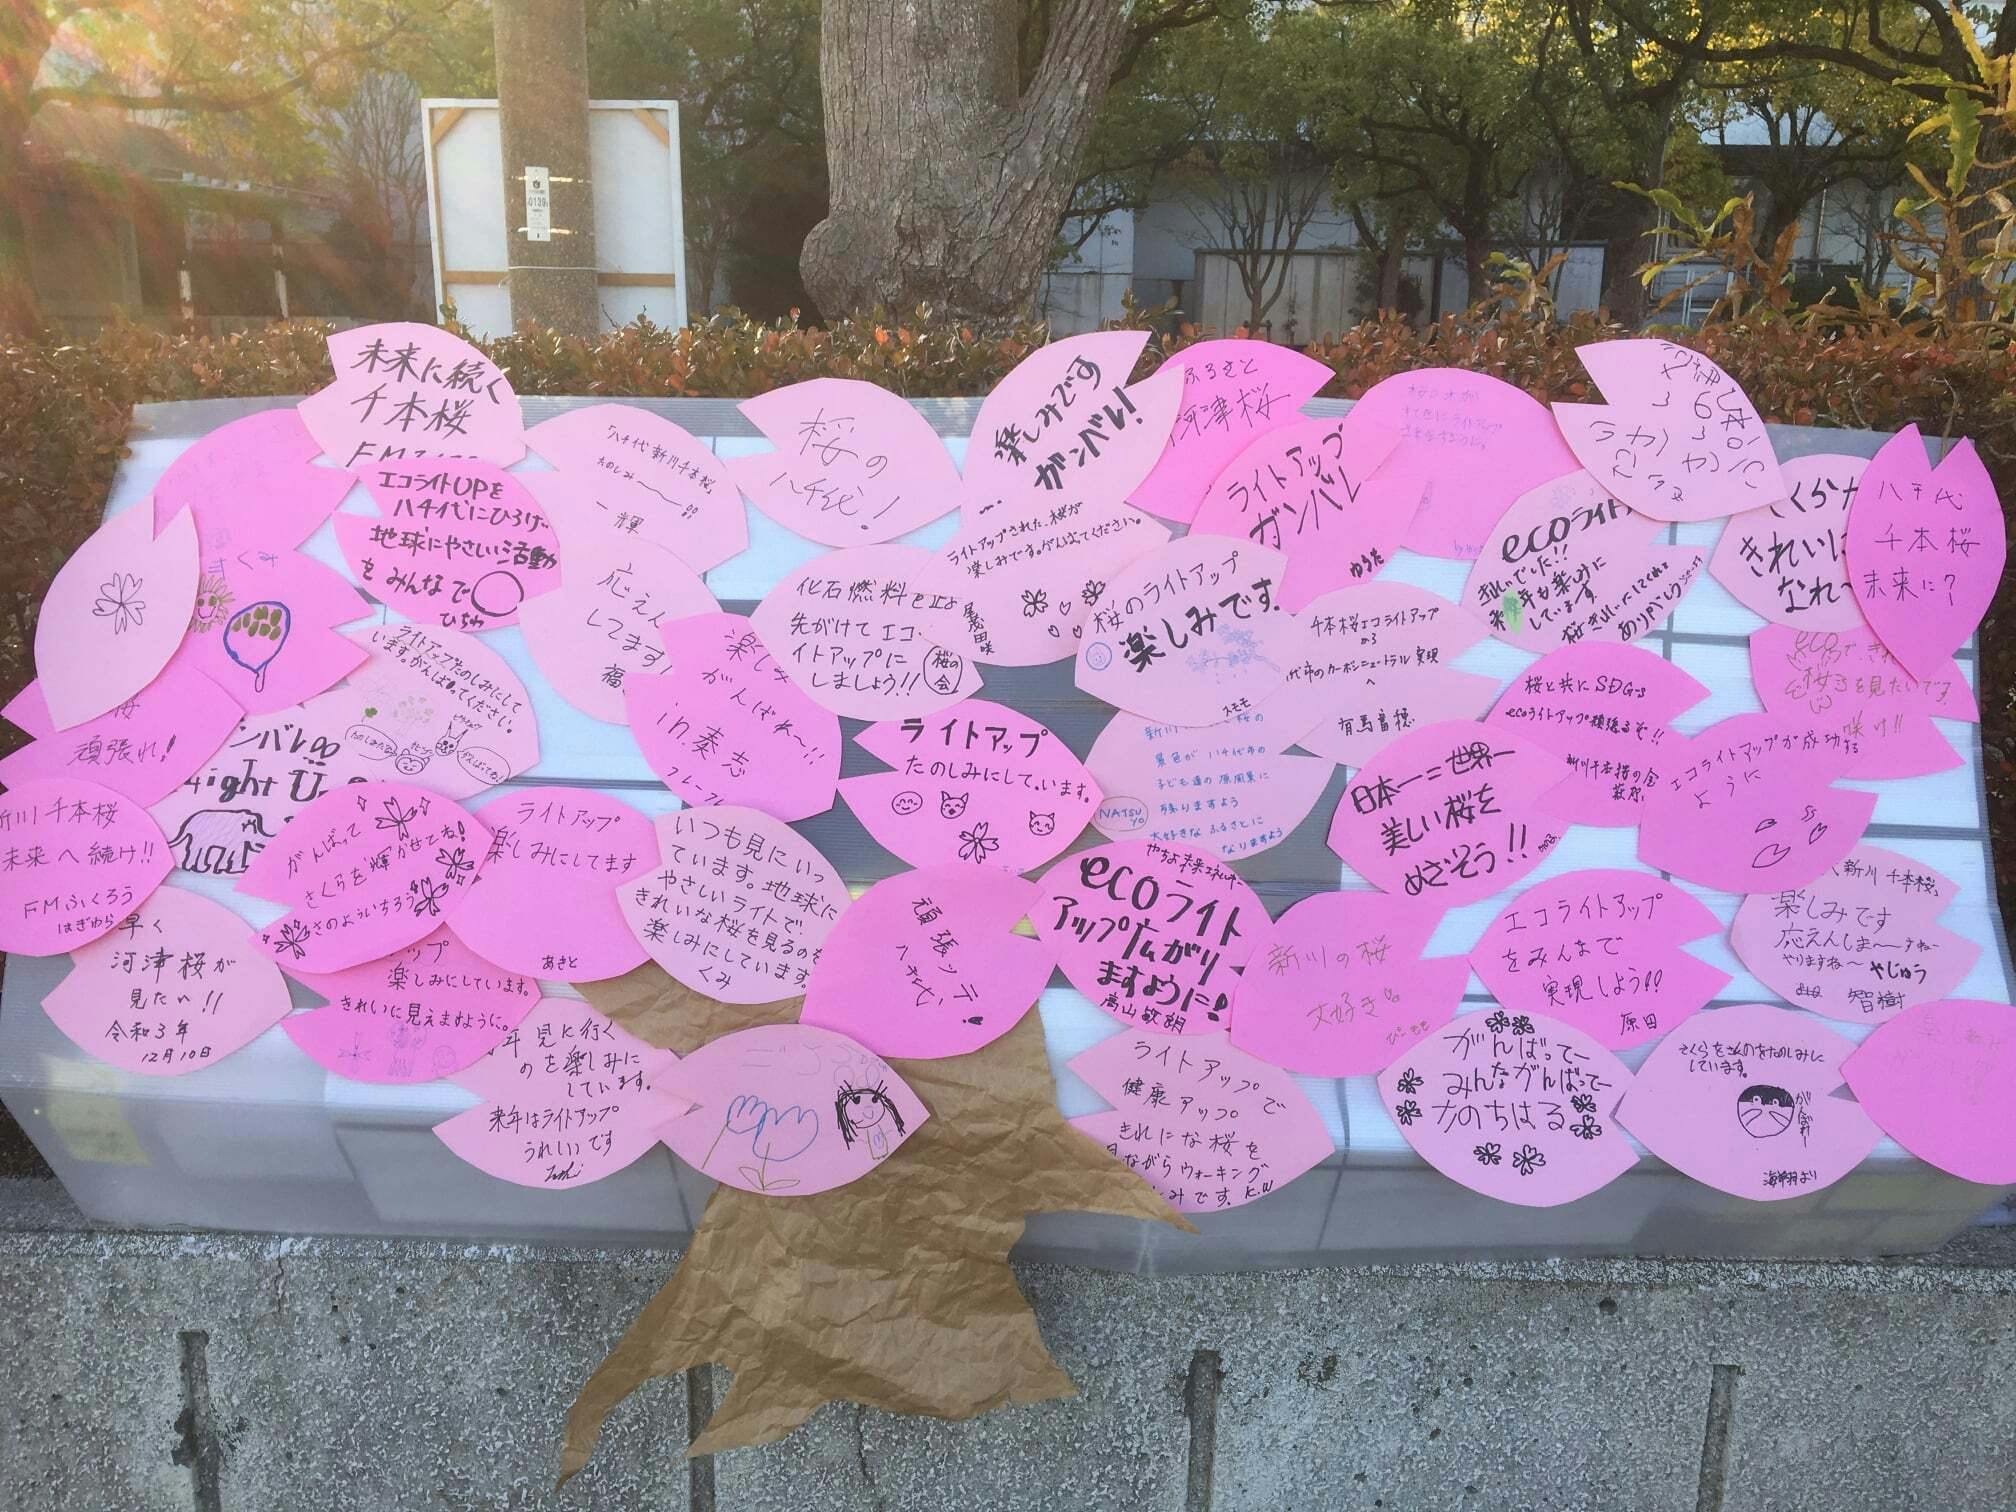 未来に続く
千本桜
エコライトUPを
八千代にひろげ
地球にやさしい活動
をみんなで
「八千代新川千本桜」
たのしみ
一輝
桜の
八千代!
楽しみです
ガンバレ!
ライトアップされた、桜が
楽しみです。がんばってください。
尾茂田咲
ふるさと
河津桜
ライトアップ
ガンバレ
ゆうた
ecoライト
きれいに
なれ〜
八千代
千本桜
未来に?
応えん
してます!
福
化石燃料を止め
先がけてエコ
イトアップに
しましょう!!
桜の
会
桜のライトアップ
楽しみです。
スモモ
千本桜エコライトアップ
代市のカーボンニュートラル実現
へ
有馬富穂
桜と共にSDGs
ecoライトアップ頑張るぞ!!
新川千本桜の会
桜
頑張れ!
ライトアップたのしみにして
います。がんばってください。
がんばれ〜!!
in.秦志
ライトアップ
たのしみにしています。
景色が 八千代市の
子ども達の原風景に
なりますよう
大好きなふるさとに
なりますよう
NATSUYO
日本一=世界一
美しい桜を
めざそう!!
エコライトアップが成功する
ように
新川千本桜
未来へ続け!!
FMふくろう
はぎゆら
がんばって
さくらを輝かせてね!
さのよういちろう
ライトアップ
楽しみにしてます
あきと
いつも見にいっ
ています。地球に
やさしいライトで、
きれいな桜を見るのを
楽しみにしています。
くみ
頑張ッテ
下さい!
やちよ未来エネルギー
ecoライト
アップ広がり
ますように!
高山敏朗
新川の桜
大好き
エコライトアップ
をみんなで
実現しよう!!
原田
新川千本桜」
楽しみです
応えんしま〜すね〜
やりますね〜
やじゅう
智樹
早く
河津桜が
見たい!!
令和3年
12月10日
ップ
楽しみにしています。
きれいに見えますように。
年見に行く
のを楽しみに
しています。
来年はライトアップ
うれしいです
ライトアップで
健康アップ
きれいな桜を
見ながらウォーキング
しみです。K.W
がんばってー
みんながんばってー
かのちはる
さくらをさんのをたのしみに
しています。
がんばれー
海翔より